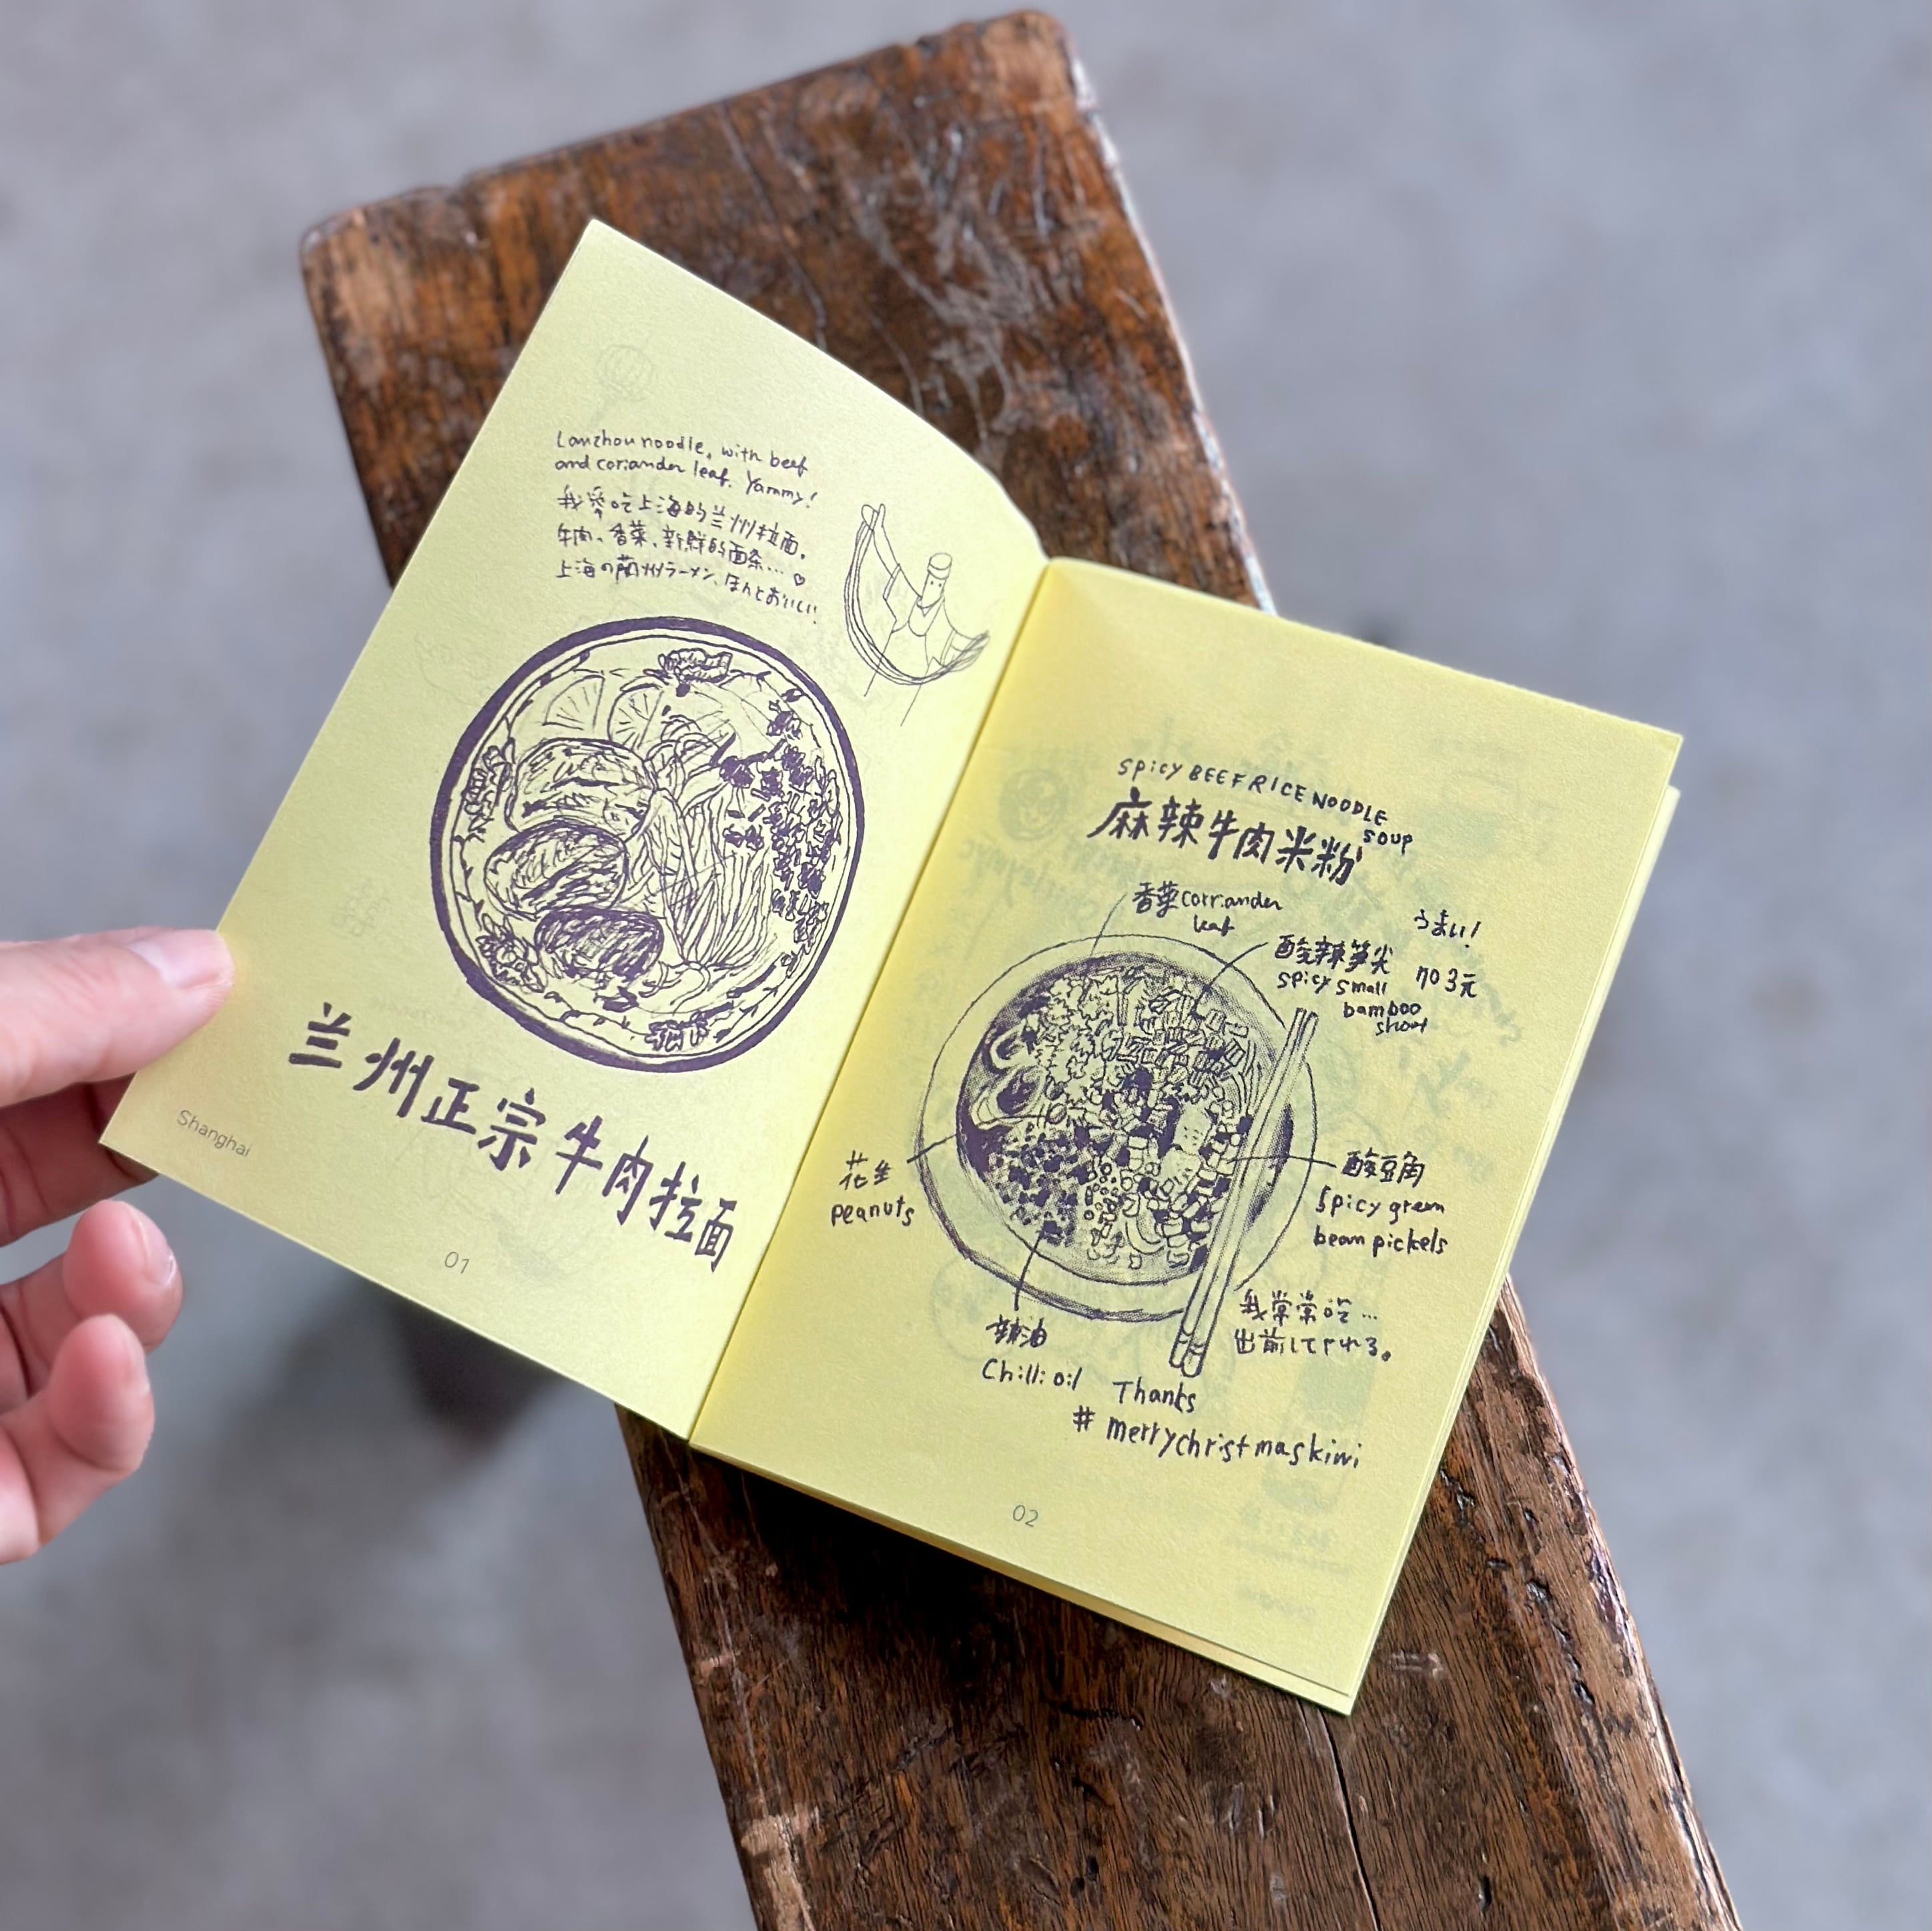 Lanzhou noodle, with beef
and coriander leaf. Yammy!
我爱吃上海的兰州拉面。
牛肉、香菜、新鮮的面条… ♡
上海の蘭州ラーメン、ほんとおいしい
兰州正宗牛肉拉面
Shanghai
01
SPICY BEEF RICE NOODLE
SOUP
麻辣牛肉米粉
香菜 corriander
leaf
うまい!
酸辣笋尖
加3元
spicy small
bamboo
shoot
花生
peanuts
酸豆角
Spicy green
bean pickels
辣油
Chilli oil
我常常吃…
出前してくれる。
Thanks
# merrychristmaskiwi
02